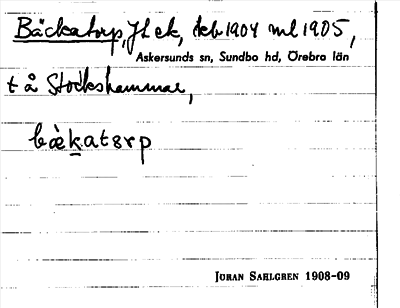 Bäckatorp, Jl ek, tab 1904 ml 1905,
Askersunds sn, Sundbo hd, Örebro län
t å Stockshammar,
bæ̀k̠atɜrp
JÖRAN SAHLGREN 1908-09